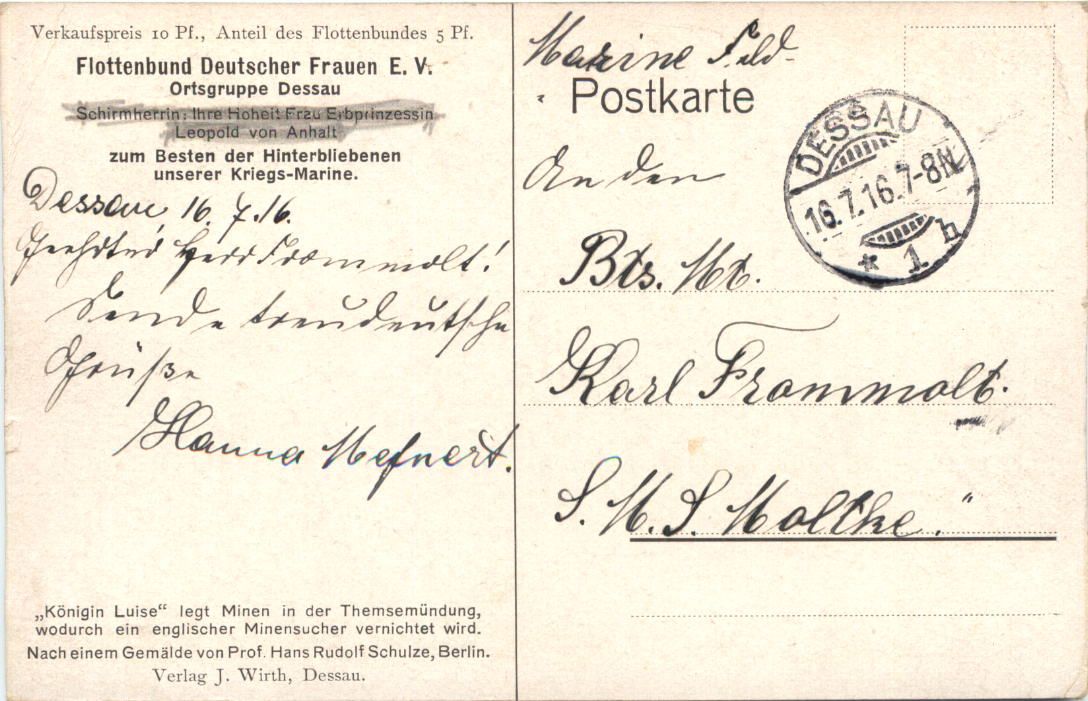 Verkaufspreis 10 Pf., Anteil des Flottenbundes 5 Pf.
Flottenbund Deutscher Frauen E. V.
Ortsgruppe Dessau
Schirmherrin: Ihre Hoheit Frau Erbprinzessin
Leopold von Anhalt
zum Besten der Hinterbliebenen
unserer Kriegs-Marine.
Dessau, 16. 7. 16.
Geehrter Herr Frommolt!
Sende treudeutsche
Grüße
Hanna
„Königin Luise“ legt Minen in der Themsemündung,
wodurch ein englischer Minensucher vernichtet wird.
Nach einem Gemälde von Prof. Hans Rudolf Schulze, Berlin.
Verlag J. Wirth, Dessau.
Marine Feld-
Postkarte
An den
Bts. Mt.
Karl Frommolt.
S. M. S. Moltke.“
DESSAU
16.7.16.7-8N
* 1 h